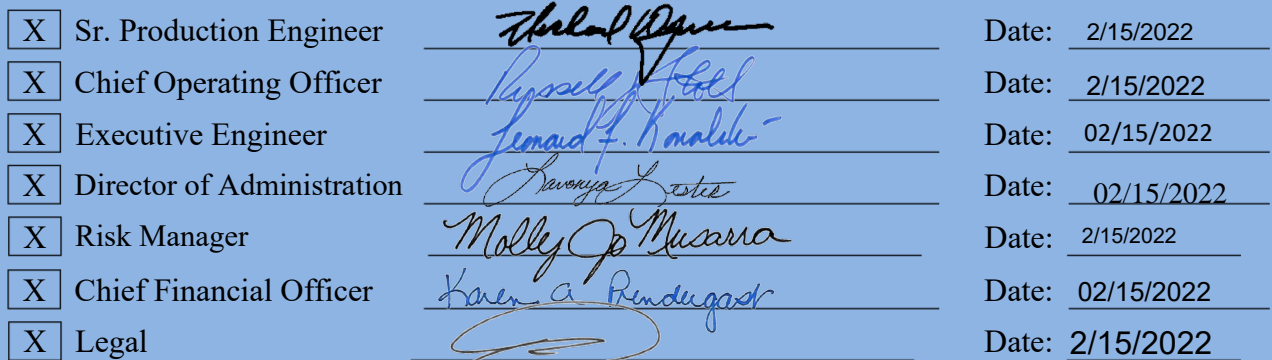 X Sr. Production Engineer Date: 2/15/2022
X Chief Operating Officer Russell Date: 2/15/2022
X Executive Engineer Leonard F. Date: 02/15/2022
X Director of Administration Lavonya Lester Date: 02/15/2022
X Risk Manager Molly Jo Musarra Date: 2/15/2022
X Chief Financial Officer Karen A Prendergast Date: 02/15/2022
X Legal Date: 2/15/2022